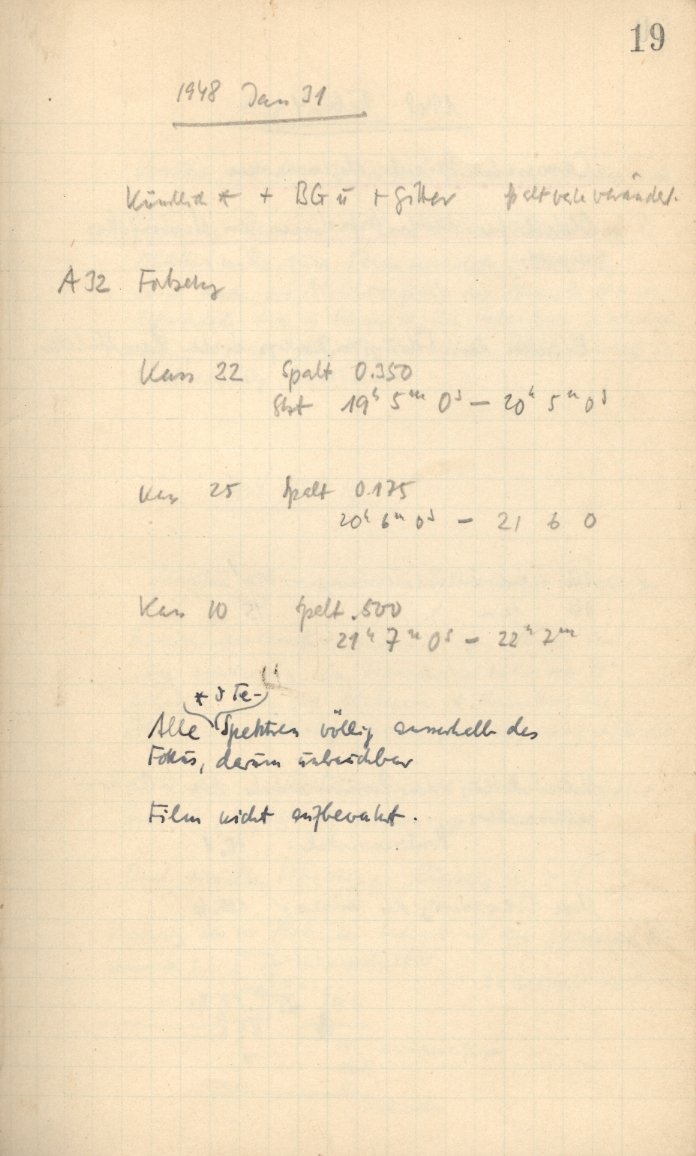 19
1948 Jan 31
Künstlich * + BG ü + Gitter Spalt verändert.
A 32 Fortsetzg
Kass 22 Spalt 0.350
19h 5m 0s — 20h 5m 0s
Kass 25 Spalt 0.175
20h 6m 0s — 21 6 0
Kass 10 Spalt .500
21h 7m 0s — 22h 7m
* d Te-
Alle Spektren völlig ausserhalb des
Fokus, darum unbrauchbar
Film nicht aufbewahrt.